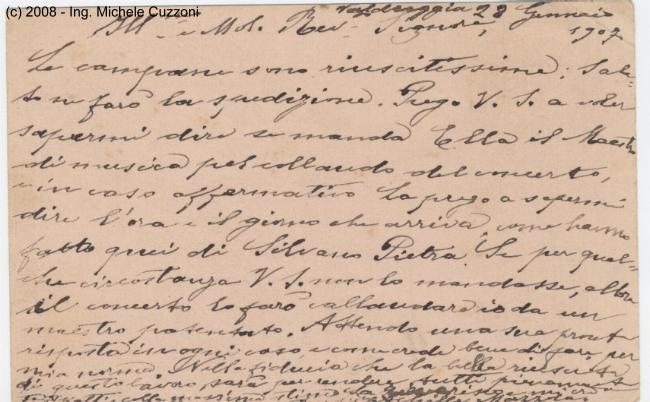 (c) 2008 - Ing. Michele Cuzzoni
Valduggia 28 Gennaio
Ill. e Mol. Rev. Signore, 1907
Le campane sono riuscitissime; Sabe-
to ne farò la spedizione. Prego V. S. a voler
sapermi dire se manda Ella il Maestro
di musica pel collaudo del concerto,
e in caso affermativo la prego a sapermi
dire l'ora e il giorno che arriva, come hanno
fatto quei di Silvano Pietra. Se per qual-
che circostanza V. S. non lo mandasse, allora
il concerto lo farò collaudare io da un
maestro patentato. Attendo una sua pronta
risposta in ogni caso, e come crede bene di fare, per
mia norma. Nella fiducia che la bella riuscita
di questo lavoro, sarà per rendere tutti pienamente
colla massima stima